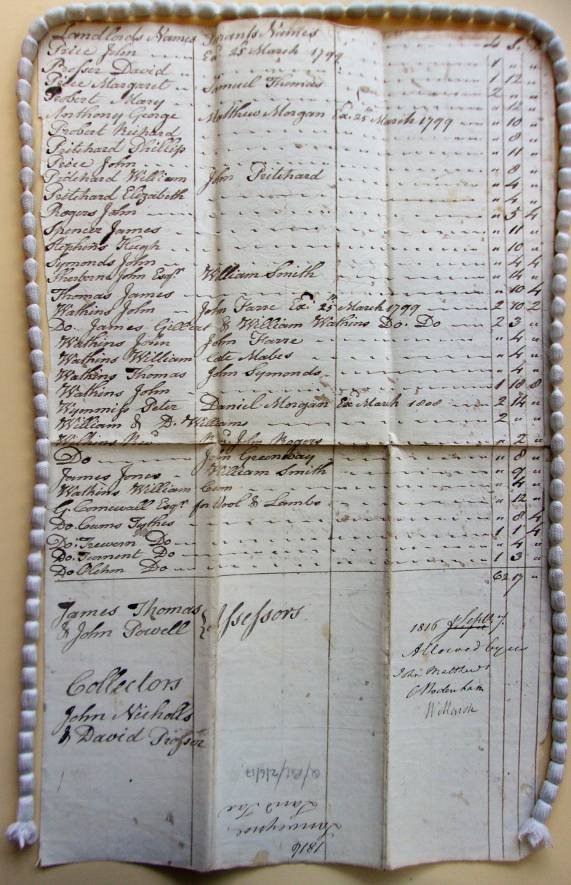 Landlords Names Tenants Names L S D
Price John Exd 25th March 1799 1 " "
Prosser David " " 1 12 "
Price Margaret Samuel Thomas 2 " "
Probert Mary " 12 "
Anthony George Matthew Morgan Exd 25th March 1799 " 10 "
Probert Richard " 8 "
Pritchard Phillip " 11 "
Price John " 8 "
Pritchard William John Pritchard " 4 "
Pritchard Elizabeth " 4 "
Rogers John " 5 4
Spencer James " 11 "
Stephens Hugh " 10 "
Symonds John " 4 4
Sherborne John Esqr William Smith " 14 "
Thomas James " 10 4
Watkins John John Farre Exd 25th March 1799 2 10 2
Do. James Gilbert & William Watkins Do. Do 2 3 "
Watkins John John Farre " 4 "
Watkins William late Mabes " 4 "
Watkins Thomas John Symonds " 4 "
Watkins John 1 18 8
Wymniss Peter Daniel Morgan Exd March 1808 2 14 "
William & D. Williams 2 " "
Watkins Revd Revd John Rogers " 2 "
Do John Greenbay " 8 "
James Jones William Smith " 9 "
Watkins William " 4 "
G. Cornewall Esqr for Wool & Lambs " 12 "
Do. Tythes " 8 4
Do. Trewern Do 1 1 4
Do. Turnent Do " 4 "
Do Olchon Do 1 3 "
62 17 "
James Thomas
& John Powell } Assessors
1816 Septr 7
Allowed by us
John Matthews
W Marsh
Collectors
John Nicholls
& David Prosser
Q/RE/2/6/17
Land Tax
1816